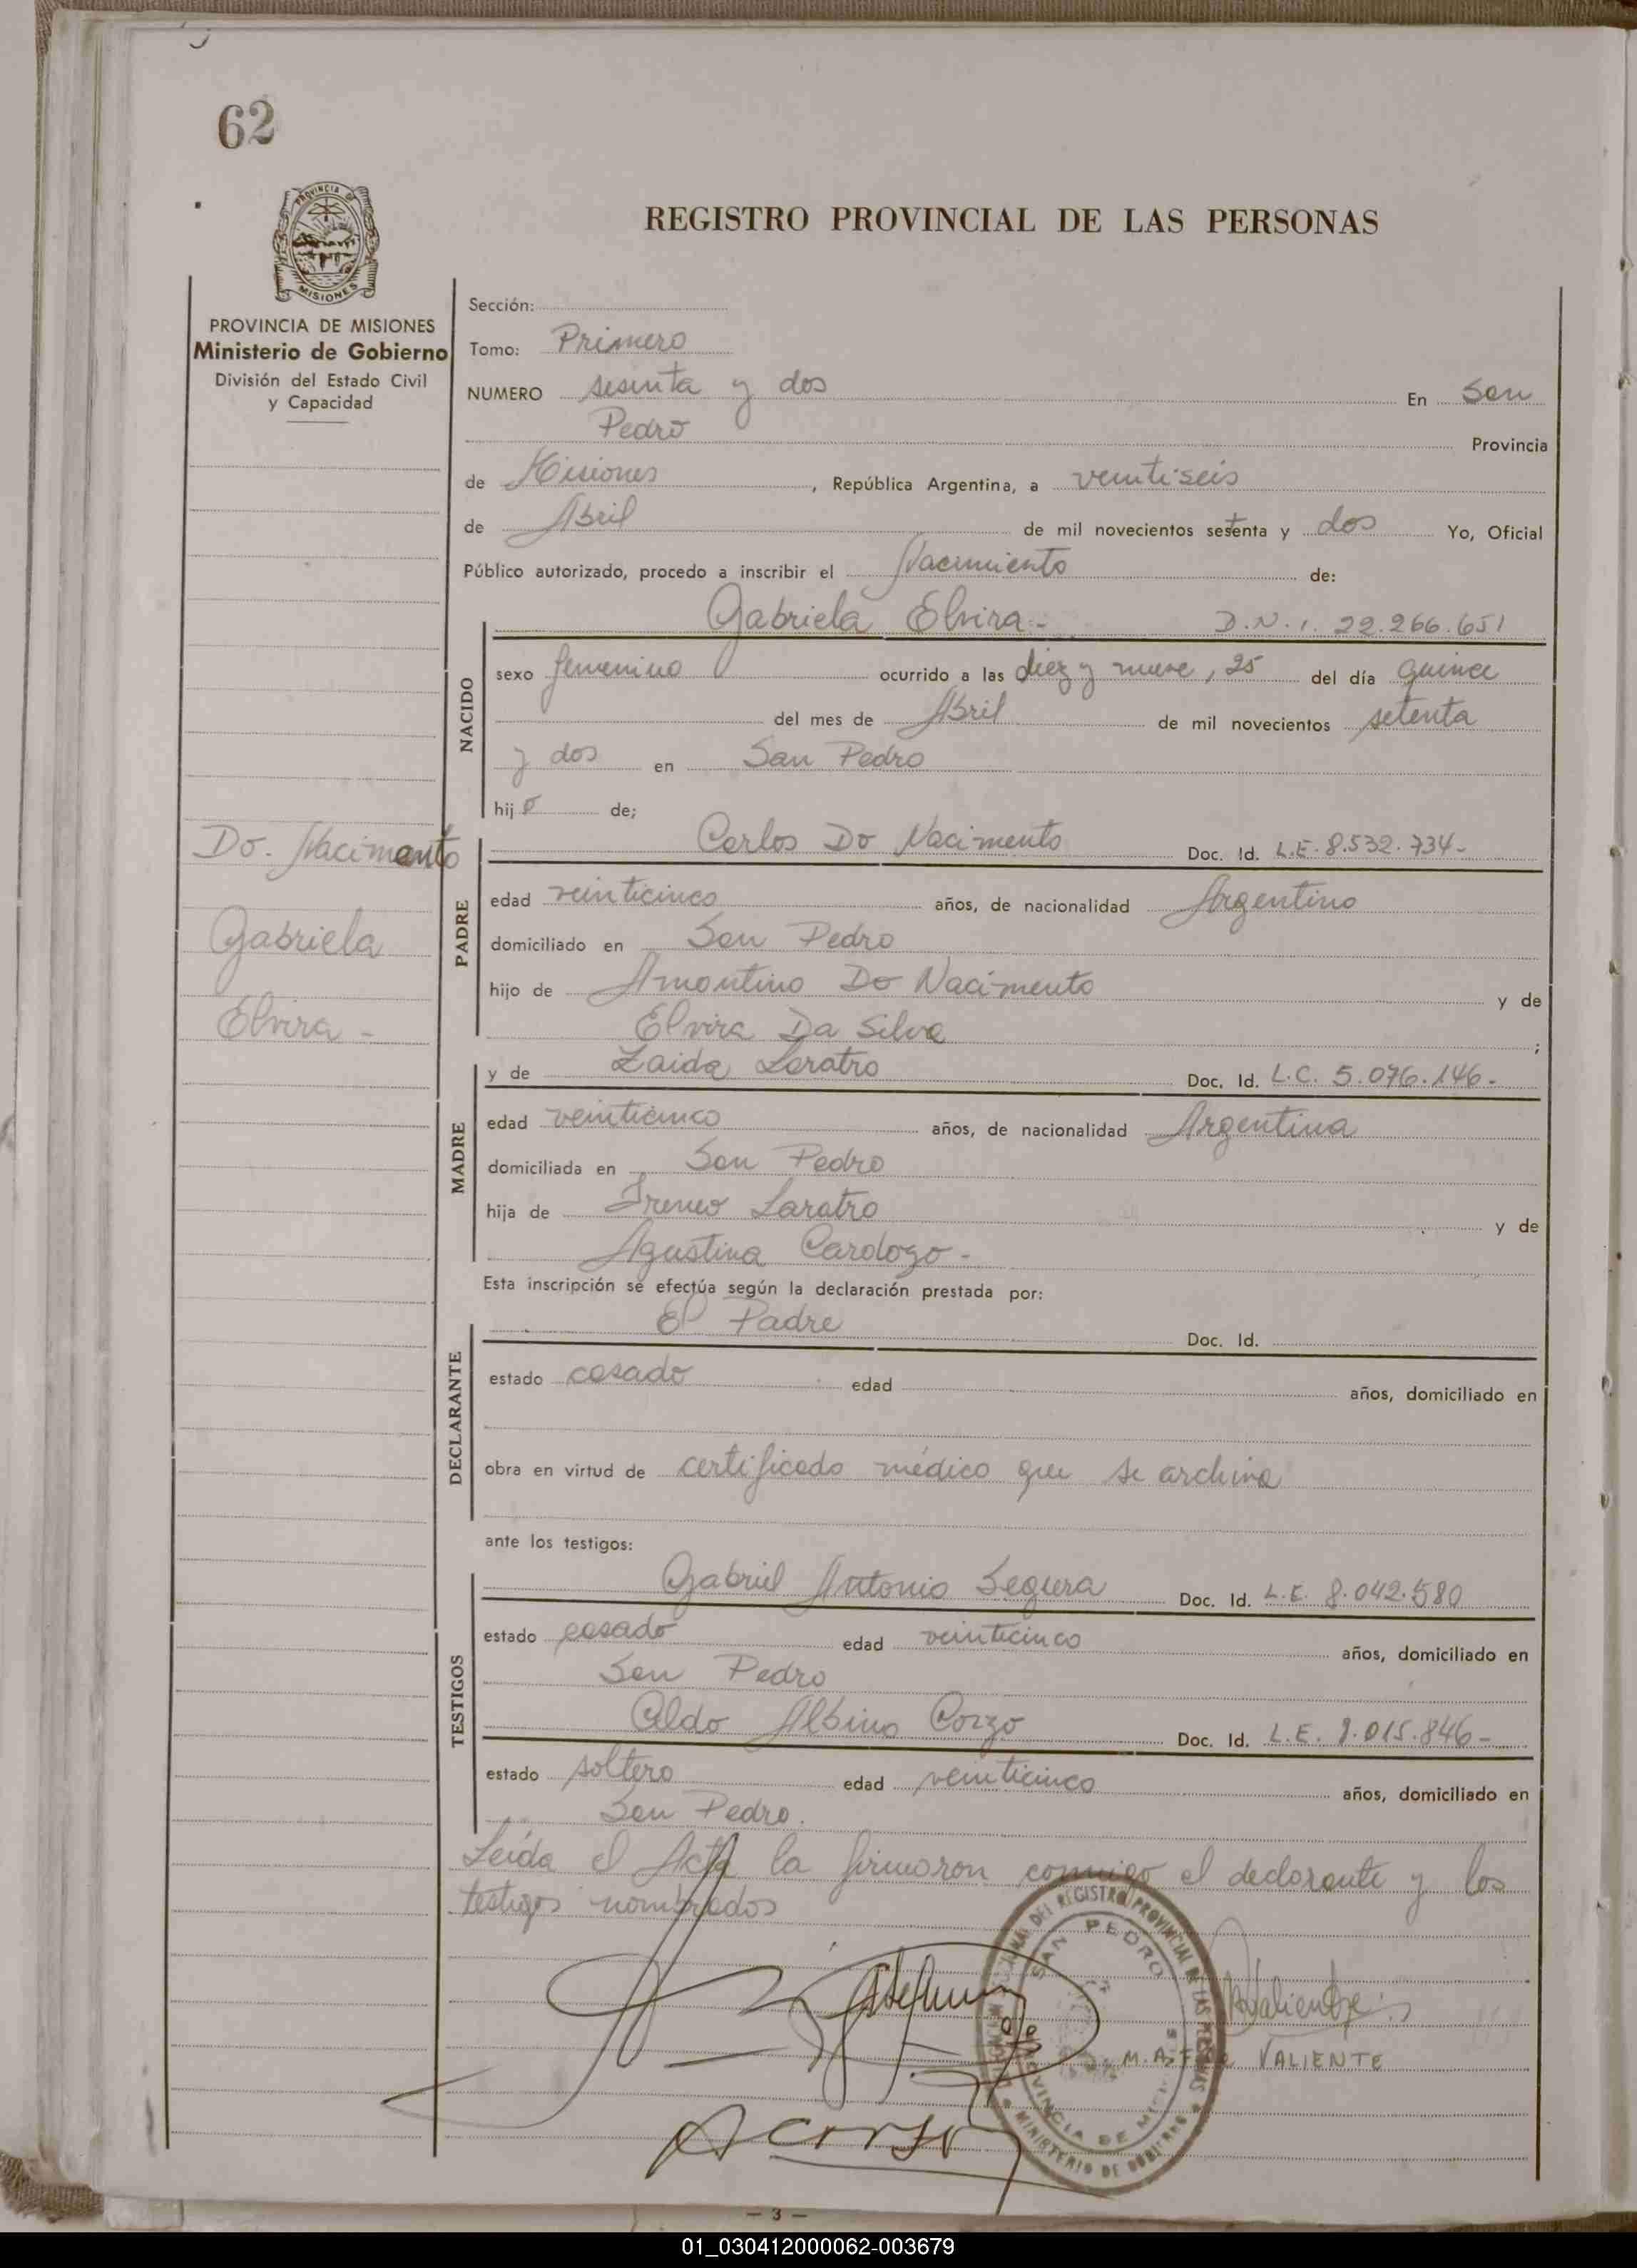 62
PROVINCIA DE
MISIONES
REGISTRO PROVINCIAL DE LAS PERSONAS
PROVINCIA DE MISIONES
Ministerio de Gobierno
División del Estado Civil
y Capacidad
Sección:
Tomo: Primero
NUMERO sesenta y dos En San
Pedro Provincia
de Misiones, República Argentina, a veintiseis
de Abril de mil novecientos setenta y dos Yo, Oficial
Público autorizado, procedo a inscribir el Nacimiento de:
Gabriela Elvira.- D.N.I. 22.266.651
NACIDO
sexo femenino ocurrido a las diez y nueve, 25 del día quince
del mes de Abril de mil novecientos setenta
y dos en San Pedro
hija de;
Do. Nacimento
Gabriela
Elvira -
PADRE
Carlos Do Nacimento Doc. Id. L.E. 8.532.734-
edad veinticinco años, de nacionalidad Argentino
domiciliado en San Pedro
hijo de Amontino Do Nacimento y de
Elvira Da Silva ;
MADRE
y de Zaida Laratro Doc. Id. L.C. 5.076.146-
edad veinticinco años, de nacionalidad Argentina
domiciliada en San Pedro
hija de Ireneo Laratro y de
Agustina Cardozo -
Esta inscripción se efectúa según la declaración prestada por:
DECLARANTE
El Padre Doc. Id.
estado casado edad años, domiciliado en
obra en virtud de certificado médico que se archiva
ante los testigos:
TESTIGOS
Gabriel Antonio Segura Doc. Id. L.E. 8.042.580
estado casado edad veinticinco años, domiciliado en
San Pedro
Aldo Albino Corzo Doc. Id. L.E. 8.015.846-
estado soltero edad veinticinco años, domiciliado en
San Pedro.
Leída el Acta la firmaron conmigo el declarante y los
testigos nombrados
DEL REGISTRO PROVINCIAL DE LAS PERSONAS
SAN PEDRO
PROVINCIA DE
MINISTERIO DE GOBIERNO
VALIENTE
- 3 -
01_030412000062-003679